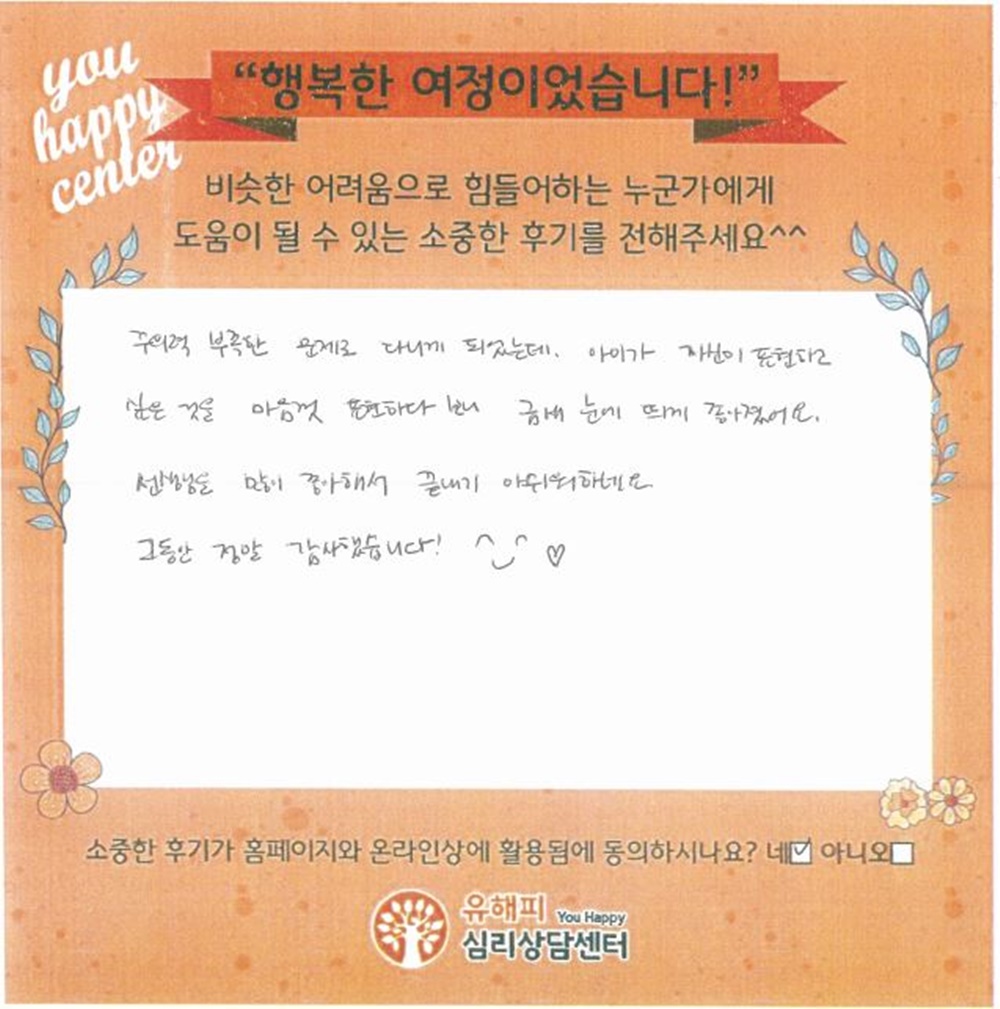 you
happy
center
“행복한 여정이었습니다!”
비슷한 어려움으로 힘들어하는 누군가에게
도움이 될 수 있는 소중한 후기를 전해주세요^^
주의력 부족한 문제로 다니게 되었는데, 아이가 자신이 표현하고
싶은 것을 마음껏 표현하다 보니 금새 눈에 띄게 좋아졌어요.
선생님을 많이 좋아해서 끝내기 아쉬워하네요
그동안 정말 감사했습니다! ^‿^ ♡
소중한 후기가 홈페이지와 온라인상에 활용됨에 동의하시나요? 네☑ 아니오☐
유해피 You Happy
심리상담센터